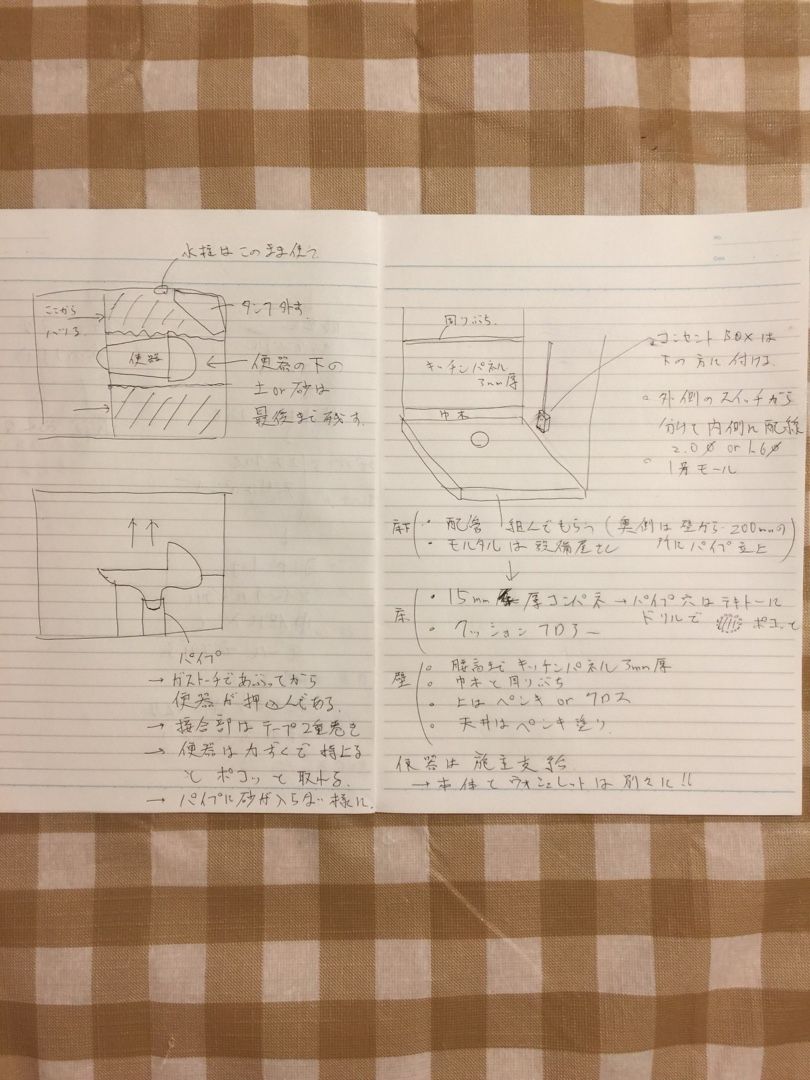 水栓はこのまま使って
ここから
ハツる
タンク外す
便器
便器の下の
土or砂は
最後まで残す.
パイプ
→ガストーチであぶってから
便器が押込んである.
→接合部はテープ2重巻き
→便器は力ずくで持上る
とポコッと取れる.
→パイプに砂が入らない様に.
廻りぶち.
キッチンパネル
3mm厚
巾木
コンセントBOXは
下の方に付ける.
外側のスイッチから
分けて内側に配線
2.0φ or 1.6φ
1号モール
床下
・配管 組んでもらう(奥側は壁から200mmの
・モルタルは設備屋さん 所にパイプ立上)
床
・15mm厚コンパネ→パイプ穴はテキトーに
ドリルで ポコッと
・クッションフロアー
壁
・腰高までキッチンパネル3mm厚
・巾木と廻りぶち
・上はペンキ or クロス
・天井はペンキ塗り.
便器は施主支給.
→本体とウォシュレットは別々に!!